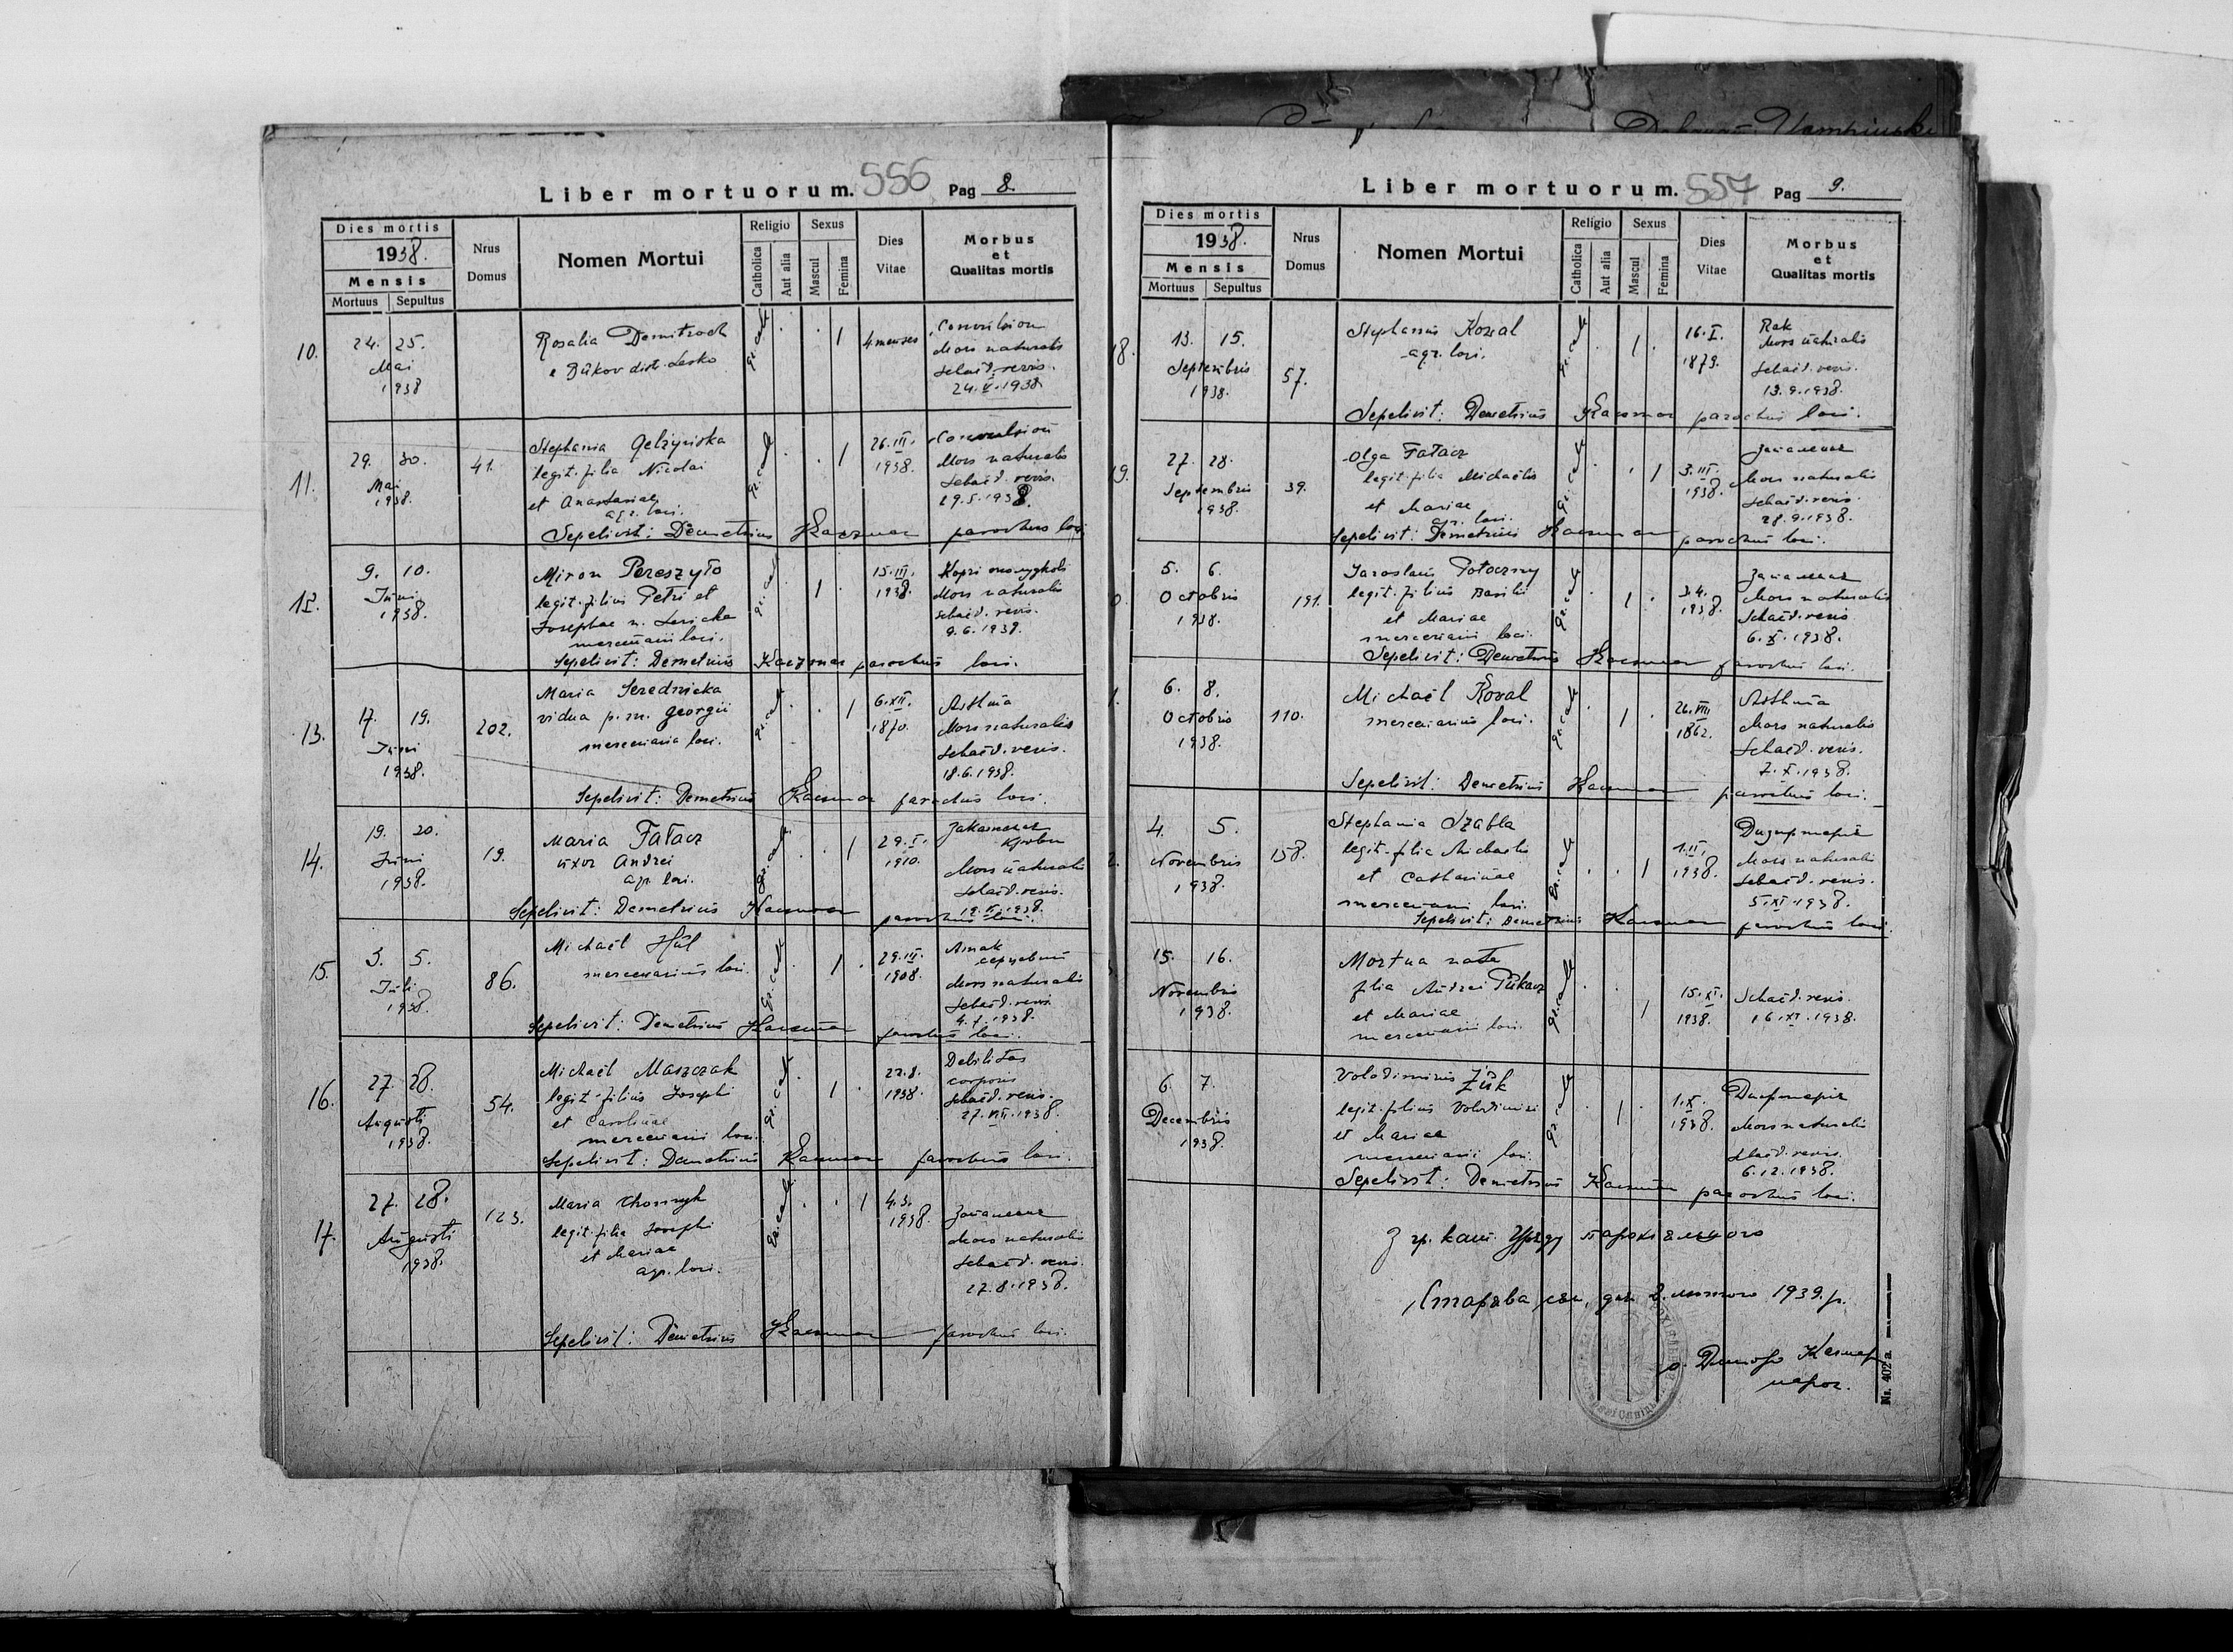 Liber mortuorum. 556 Pag 8.
Dies mortis
1938.
Mensis
Mortuus Sepultus
Nrus
Domus
Nomen Mortui
Religio
Catholica
Aut alia
Sexus
Mascul
Femina
Dies
Vitae
Morbus
et
Qualitas mortis
10.
24. 25.
Mai
1938
Rosalia Demitroch
e Bukov distr. Lesko
gr. cath
1
4 menses
Mors naturalis
Schaed. revis.
24.V.1938.
11.
29. 30.
Mai
1938.
41.
Stephania
legit. filia Nicolai
et Anastasiae
agr. loci.
gr. cath
1
26.III.
1938.
Mors naturalis
Schaed. revis.
29.5.1938.
Sepelivit: Demetrius Kaczmar parochus loci
12.
9. 10.
Juni
1938.
Miron Pereszyło
legit. filius Petri et
Josephae n.
mercenarii loci.
gr. cath
1
15.III.
1938.
Mors naturalis
Schaed. revis.
9.6.1938.
Sepelivit: Demetrius Kaczmar parochus loci.
13.
17. 19.
Juni
1938.
202.
Maria Serednicka
vidua p. m. Georgii
mercenaria loci.
gr. cath
1
6.XII.
1870.
Asthma
Mors naturalis
Schaed. revis.
18.6.1938.
Sepelivit: Demetrius Kaczmar parochus loci.
14.
19. 20.
Juni
1938.
19.
Maria Fatacz
uxor Andrei
agr. loci.
gr. cath
1
29.I.
1910.
крови
Mors naturalis
Schaed. revis.
Sepelivit: Demetrius Kaczmar parochus loci.
15.
3. 5.
Juli
1938.
86.
Michaël Hul
mercenarius loci.
gr. cath
1
29.III.
1908.
Атак
серцевий
Mors naturalis
Schaed. revis.
Sepelivit: Demetrius Kaczmar parochus loci.
16.
27. 28.
Augusti
1938.
54.
Michaël Maszczak
legit. filius Josephi
et Carolinae
mercenarii loci.
gr. cath
1
22.8.
1938.
Debilitas
corporis
Schaed. revis.
27.VIII.1938.
Sepelivit: Demetrius Kaczmar parochus loci.
17.
27. 28.
Augusti
1938.
123.
Maria
legit. filia Josephi
et Mariae
agr. loci.
gr. cath
1
4.3.
1938.
Запалення
Mors naturalis
Schaed. revis.
27.8.1938.
Sepelivit: Demetrius Kaczmar parochus loci.
Liber mortuorum. 557 Pag 9.
Dies mortis
1938.
Mensis
Mortuus Sepultus
Nrus
Domus
Nomen Mortui
Religio
Catholica
Aut alia
Sexus
Mascul
Femina
Dies
Vitae
Morbus
et
Qualitas mortis
18.
13. 15.
Septembris
1938.
57.
Stephanus Kowal
agr. loci.
gr. cath
1
16.I.
1879.
Rak
Mors naturalis
Schaed. revis.
13.9.1938.
Sepelivit: Demetrius Kaczmar parochus loci.
9.
27. 28.
Septembris
1938
39.
Olga Fatacz
legit. filia Michaëlis
et Mariae
agr. loci.
gr. cath
1
3.III.
1938.
Запалення
Mors naturalis
Schaed. revis.
28.9.1938.
Sepelivit: Demetrius Kaczmar parochus loci.
0.
5. 6.
Octobris
1938.
191.
Jaroslaus Potoczny
legit. filius Basilii
et Mariae
mercenarii loci.
gr. cath
1
3.4.
1938.
Запалення
Mors naturalis
Schaed. revis
6.X.1938.
Sepelivit: Demetrius Kaczmar parochus loci.
1.
6. 8.
Octobris
1938.
110.
Michaël Koval
mercenarius loci.
gr. cath
1
26.VIII
1862.
Asthma
Mors naturalis
Schaed. revis.
7.X.1938.
Sepelivit: Demetrius Kaczmar parochus loci.
2.
4. 5.
Novembris
1938.
158.
Stephania Szabla
legit. filia Michaelis
et Catharinae
mercenarii loci.
gr. cath
1
1.II.
1938.
Mors naturalis
Schaed. revis.
5.XI.1938.
Sepelivit: Demetrius Kaczmar parochus loci.
15. 16.
Novembris
1938.
Mortua nata
filia Andrei Pukacz
et Mariae
mercenarii loci.
gr. cath
1
15.XI.
1938.
Schaed. revis.
16.XI.1938.
6. 7.
Decembris
1938.
Volodimirus Żuk
legit. filius Volodimiri
et Mariae
mercenarii loci.
gr. cath
1
1.X.
1938.
Mors naturalis
Schaed. revis.
6.12.1938.
Sepelivit: Demetrius Kaczmar parochus loci.
З гр. кат. Уряду парохіяльного
Старява дня 2. лютого 1939. р.
о. Димитро Качмар
парох.
Nr. 402 a.